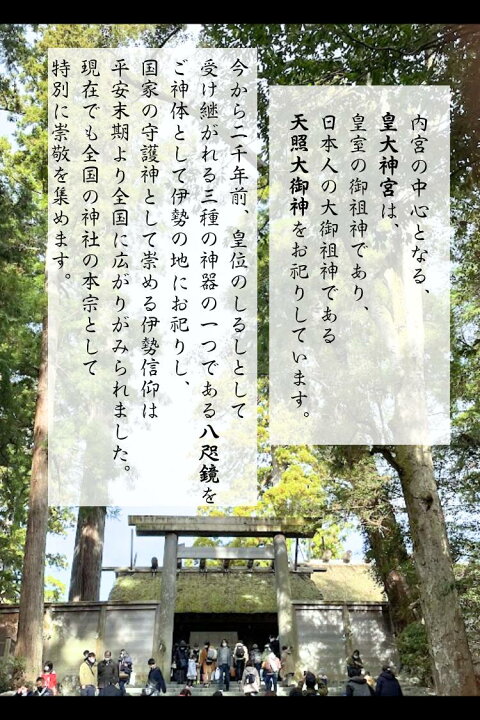 内宮の中心となる、
皇大神宮は、
皇室の御祖神であり、
日本人の大御祖神である
天照大御神をお祀りしています。
今から二千年前、皇位のしるしとして
受け継がれる三種の神器の一つである八咫鏡を
ご神体として伊勢の地にお祀りし、
国家の守護神として崇める伊勢信仰は
平安末期より全国に広がりがみられました。
現在でも全国の神社の本宗として
特別に崇敬を集めます。